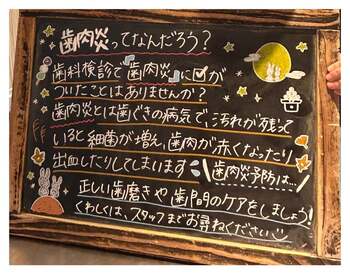 歯肉炎ってなんだろう？
歯科検診で『歯肉炎』に☑が
ついたことはありませんか？
歯肉炎とは歯ぐきの病気で、汚れが残って
いると細菌が増え、歯肉が赤くなったり
出血したりしてしまいます
歯肉炎予防は…
正しい歯磨きや歯間のケアをしましょう！
くわしくは、スタッフまでお尋ねください